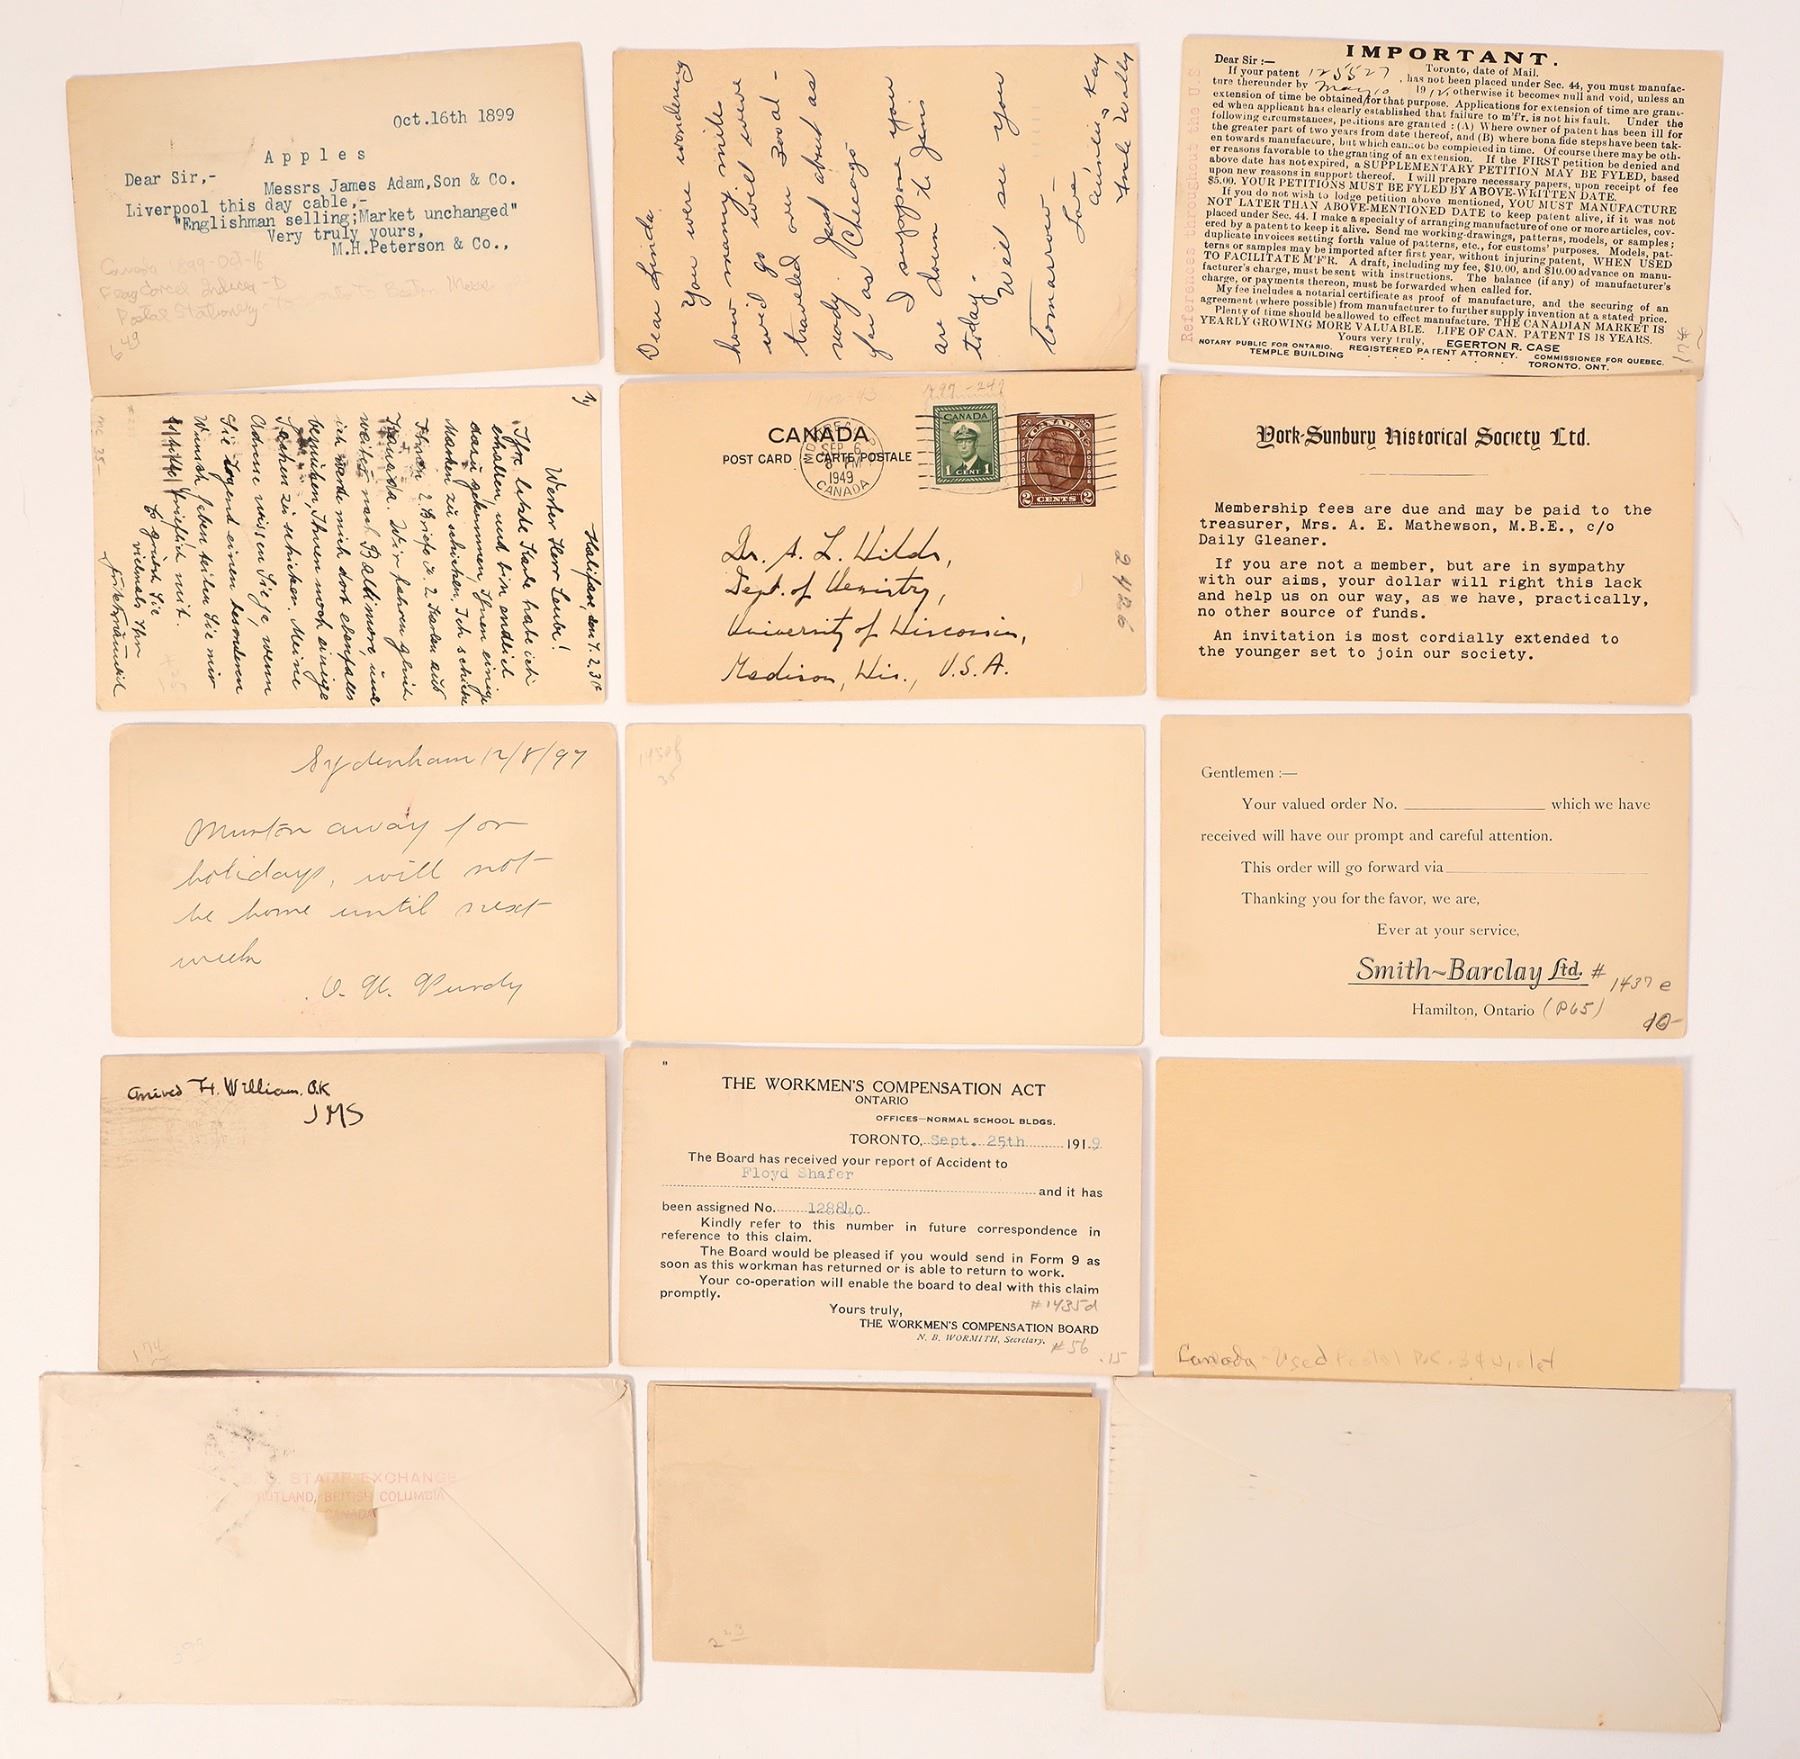 Oct.16th 1899
Apples
Dear Sir,-
Messrs James Adam,Son & Co.
Liverpool this day cable,-
"Englishman selling;Market unchanged"
Very truly yours,
M.H.Peterson & Co.,
Canada 1899-Oct-16
Flag Cancel
Postal Stationery - Toronto To Boston Mass
649
Dear Linda
You were wondering
how many mile
we'd go will we've
traveled over 300 al-
ready. Just about as
far as Chicago
I suppose you
are down to Jeris
today-
Well see you
tomarrow-
Love-
Aunties Kay
Uncle Wally
IMPORTANT.
Toronto, date of Mail.
Dear Sir :—
If your patent 125527, has not been placed under Sec. 44, you must manufac-
ture thereunder by May 10 1912, otherwise it becomes null and void, unless an
extension of time be obtained for that purpose. Applications for extension of time are grant-
ed when applicant has clearly established that failure to m'f'r. is not his fault. Under the
following circumstances, petitions are granted : (A) Where owner of patent has been ill for
the greater part of two years from date thereof, and (B) where bona fide steps have been tak-
en towards manufacture, but which cannot be completed in time. Of course there may be oth-
er reasons favorable to the granting of an extension. If the FIRST petition be denied and
above date has not expired, a SUPPLEMENTARY PETITION MAY BE FYLED, based
upon new reasons in support thereof. I will prepare necessary papers, upon receipt of fee
$5.00. YOUR PETITIONS MUST BE FYLED BY ABOVE-WRITTEN DATE.
If you do not wish to lodge petition above mentioned, YOU MUST MANUFACTURE
NOT LATER THAN ABOVE-MENTIONED DATE to keep patent alive, if it was not
placed under Sec. 44. I make a specialty of arranging manufacture of one or more articles, cov-
ered by a patent to keep it alive. Send me working-drawings, patterns, models, or samples ;
duplicate invoices setting forth value of patterns, etc., for customs' purposes. Models, pat-
terns or samples may be imported after first year, without injuring patent, WHEN USED
TO FACILITATE M'F'R. A draft, including my fee, $10.00, and $10.00 advance on manu-
facturer's charge, must be sent with instructions. The balance (if any) of manufacturer's
charge, or payments thereon, must be forwarded when called for.
My fee includes a notarial certificate as proof of manufacture, and the securing of an
agreement (where possible) from manufacturer to further supply invention at a stated price.
Plenty of time should be allowed to effect manufacture. THE CANADIAN MARKET IS
YEARLY GROWING MORE VALUABLE. LIFE OF CAN. PATENT IS 18 YEARS.
Yours very truly, EGERTON R. CASE
NOTARY PUBLIC FOR ONTARIO. REGISTERED PATENT ATTORNEY. COMMISSIONER FOR QUEBEC.
TEMPLE BUILDING . . . . . TORONTO, ONT.
References throughout the U.S
Halifax, den 7.2.30
Werter Herr Laube!
Ihre letzte Karte habe ich
erhalten, und bin endlich
dazu gekommen, Ihnen einige
Marken zu schicken. Ich schicke
Ihnen 2 Briefe u. 2 Karten aus
Kanada. Wir fahren gleich
weiter nach Baltimore, und
ich werde mich dort ebenfalls
bemühen, Ihnen noch einige
Sachen zu schicken. Meine
Adresse wissen Sie ja, wenn
Sie irgend einen besonderen
Wunsch haben teilen Sie mir
brieflich mit.
Es grüsst Sie
vielmals Ihr
MC 35-
CANADA
POST CARD CARTE POSTALE
SEP 6
PM
1949
CANADA
CANADA
1 CENT 1
CANADA
2 CENTS 2
Dr. A. L. Wilds,
Dept. of Chemistry,
University of Wisconsin,
Madison, Wis., U.S.A.
2426
York-Sunbury Historical Society Ltd.
Membership fees are due and may be paid to the
treasurer, Mrs. A. E. Mathewson, M.B.E., c/o
Daily Gleaner.
If you are not a member, but are in sympathy
with our aims, your dollar will right this lack
and help us on our way, as we have, practically,
no other source of funds.
An invitation is most cordially extended to
the younger set to join our society.
Sydenham 12/8/97
Murton away for
holidays, will not
be home until next
week
Purdy
Gentlemen :—
Your valued order No. which we have
received will have our prompt and careful attention.
This order will go forward via
Thanking you for the favor, we are,
Ever at your service,
Smith~Barclay Ltd. # 1437 e
Hamilton, Ontario (P65)
10-
arrived Ft. William. O.K
JMS
174
THE WORKMEN'S COMPENSATION ACT
ONTARIO
OFFICES—NORMAL SCHOOL BLDGS.
TORONTO, Sept. 25th 1919
The Board has received your report of Accident to
Floyd Shafer
and it has
been assigned No. 128840
Kindly refer to this number in future correspondence in
reference to this claim.
The Board would be pleased if you would send in Form 9 as
soon as this workman has returned or is able to return to work.
Your co-operation will enable the board to deal with this claim
promptly.
#1435d
Yours truly,
THE WORKMEN'S COMPENSATION BOARD
N. B. WORMITH, Secretary.
#56
.15
Canada - Used Postal P.C. 3¢ Violet
B. C. STAMP EXCHANGE
RUTLAND, BRITISH COLUMBIA
CANADA